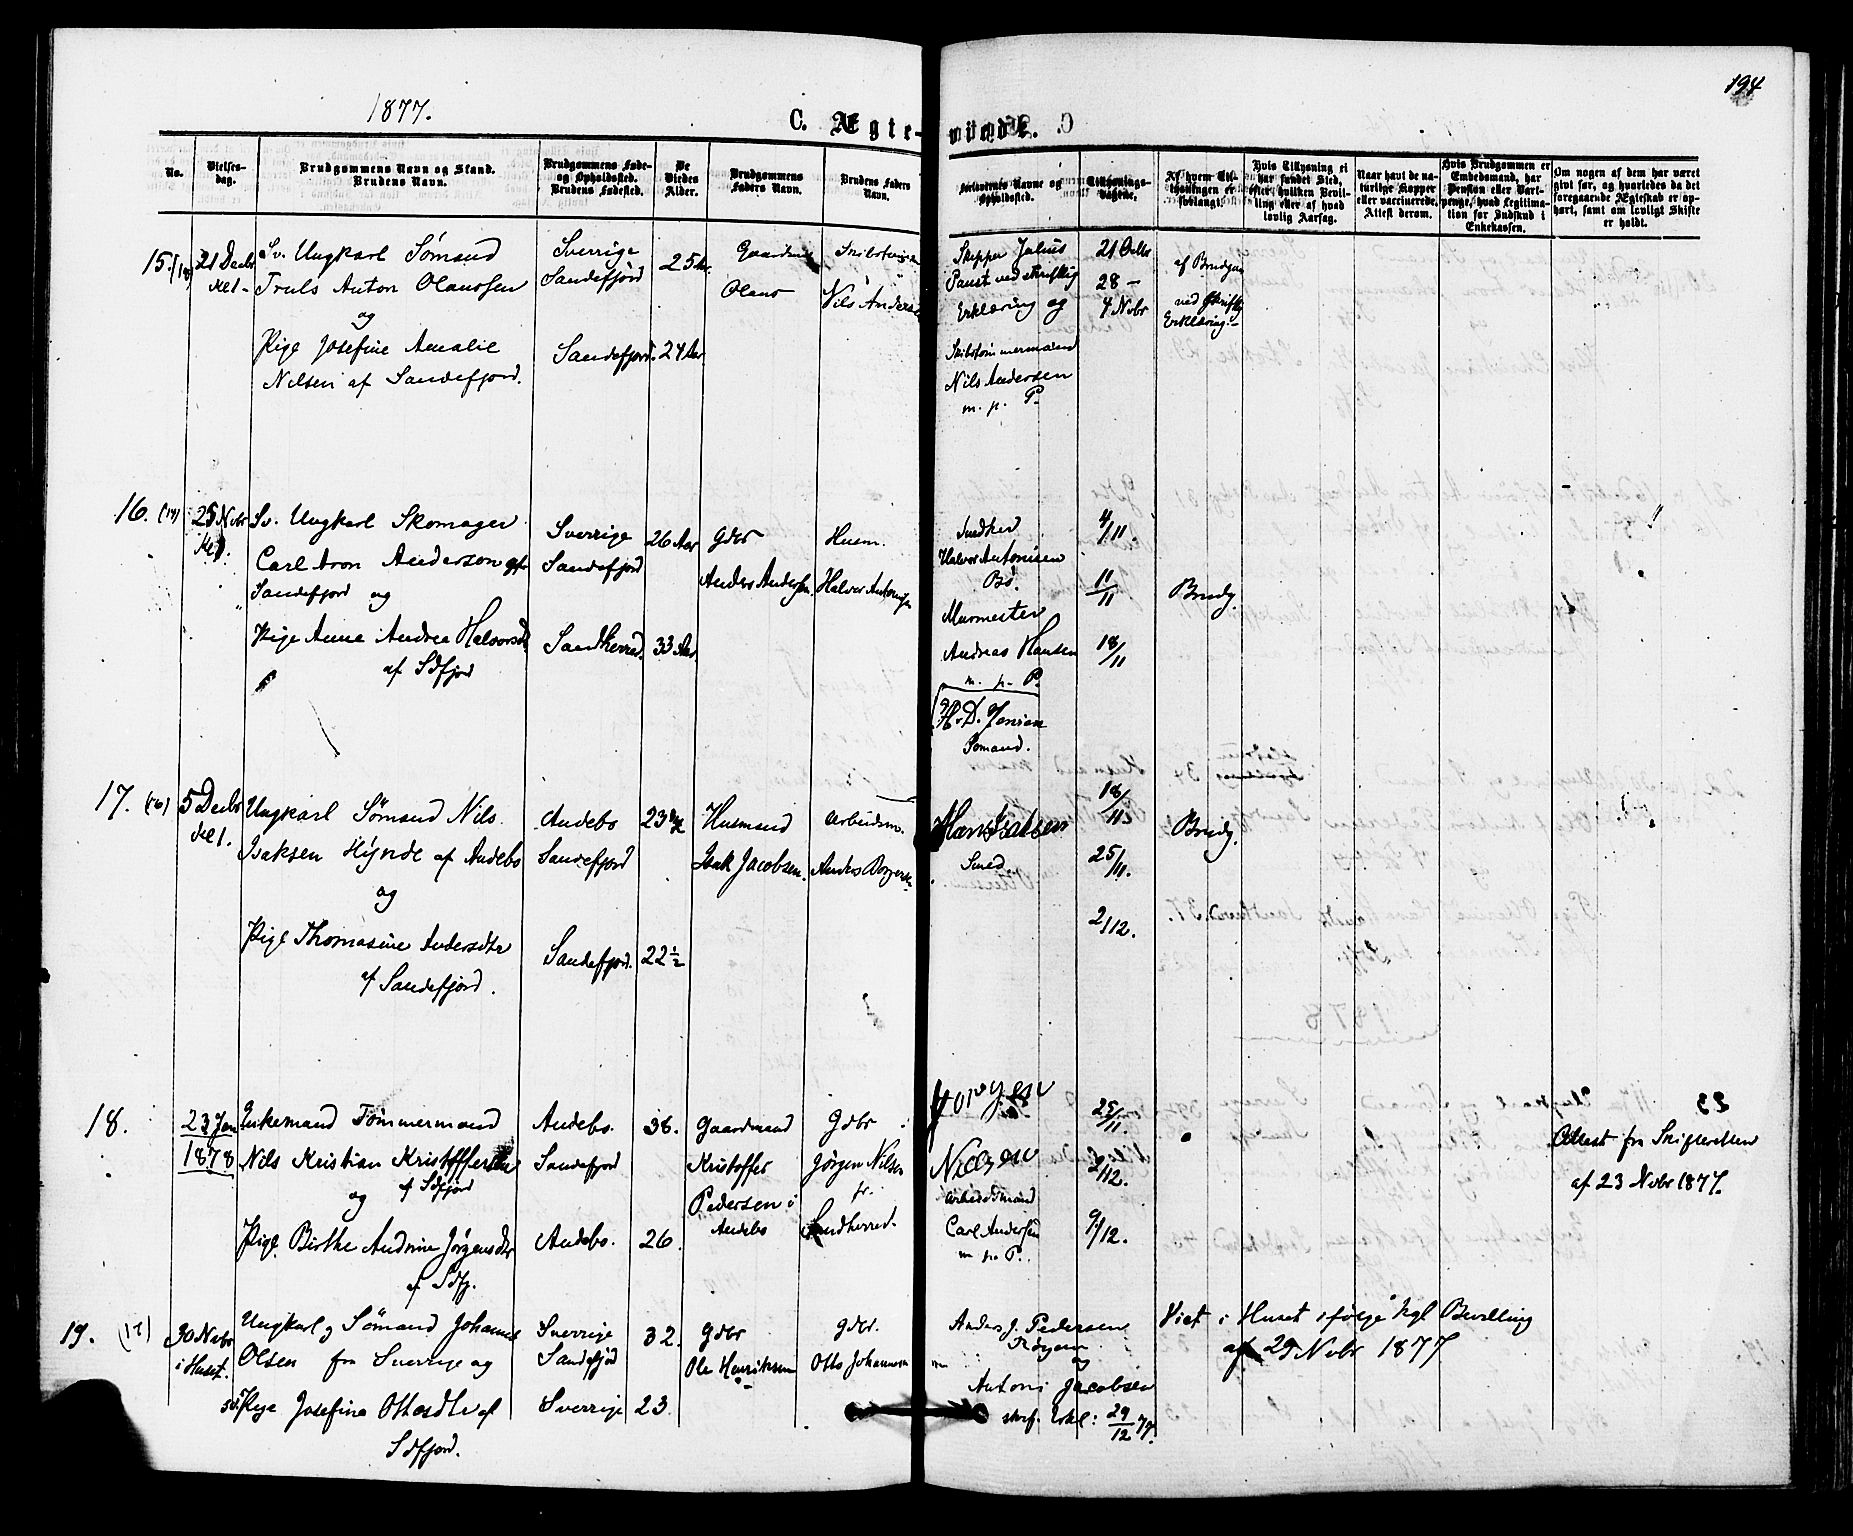 1877.
194
C. Ægte-
viede.
No.
Vielses-
dag.
Brudgommens Navn og Stand.
Brudens Navn.
Brudgommens Føde-
og Opholdssted.
Brudens Fødested.
De
Viedes
Alder.
Brudgommens
Faders Navn.
Brudens Faders
Navn.
Forlovernes Navne og
Opholdssted.
Tillysnings-
dagene.
Af hvem Til-
lysningen er
forlangt.
Hvis Tillysning ei
har fundet Sted,
efter hvilken Bevil-
ling eller af hvad
lovlig Aarsag.
Naar havt de na-
turlige Kopper
eller vaccinerede.
Attest derom.
Hvis Brudgommen er
Embedsmand, har
Pension eller Vart-
penge, hvad Legitima-
tion for Indskud i
Enkekassen.
Om nogen af dem har været
gift før, og hvorledes da det
foregaaende Ægteskab er op-
hørt, samt om lovligt Skifte
er holdt.
15. (18)
21 Decbr
Kl 1 -
Sv. Ungkarl Sømand
Truls Anton Olaussen
og
Pige Josefine Amalie
Nilsen af Sandefjord.
Sverrige
Sandefjord
Sandefjord.
25 Aar
24 Aar
Gaardmd
Olaus
Nils Andersen
Skipper Julius
Paust ved skriftlig
Erklæring og
Skibstømmermand
Nils Andersen
m. p. P.
21 Octbr
28 -
4 Novbr
af Brudgom
ved skriftlig
Erklæring.
16. (14)
25 Novbr
Kl 1.
Sv. Ungkarl Skomager
Carl Aron Anderson af
Sandefjord og
Pige Anne Andrea Halvorsdtr
af Sdfjord
Sverrige
Sandefjord
Sandherred.
26 Aar
33 Aar
Gdbr
Anders Andersen
Husm.
Halvor Antonsen
Snedker
Halvor Antonisen
Bø.
Murmester
Andreas Hansen
m. p. P.
4/11.
11/11
18/11
Brudg.
17. (16)
5 Decbr
Kl 1.
Ungkarl Sømand Nils
Isaksen Hynde af Andebo
og
Pige Thomasine Andersdtr
af Sandefjord.
Andebo
Sandefjord
Sandefjord.
23
22 1/2
Husmand
Isak Jacobsen.
Arbeidsm.
H. D. Jensen
Sømand.
Hans Isaksen
Smed.
18/11
25/11.
2/12.
Brudg.
18.
23 Jan
1878
Enkemand Tømmermand
Nils Kristian Kristoffersen
af Sdfjord
og
Pige Birthe Andrine Jørgensdtr
af Sdfj.
Andebo.
Sandefjord
Andebo.
36.
26.
Gaardmand
Kristoffer
Pedersen i
Andebo
Gdbr
Jørgen Nilsen
fr.
Sandherred.
Jørgen
Nielsen
Arbeidsmand
Carl Andersen
m. p. P.
25/11.
2/12.
9/12.
Attest fra Skifteretten
af 23 Novbr 1877.
19. (17)
30 Novbr
i Huset.
Ungkarl og Sømand Johannes
Olsen fra Sverrige og
Pige Josefina Ottosdtr af
Sdfjord.
Sverrige
Sandefjord
Sverrige
32.
23.
Gdbr
Ole Henriksen
Gdbr.
Otto Johannesen
Anders J. Pedersen
og
Anton Jacobsen
skrf. Erkl: 29/12 77.
Viet i Huset ifølge kgl Bevilling
af 29 Novbr 1877